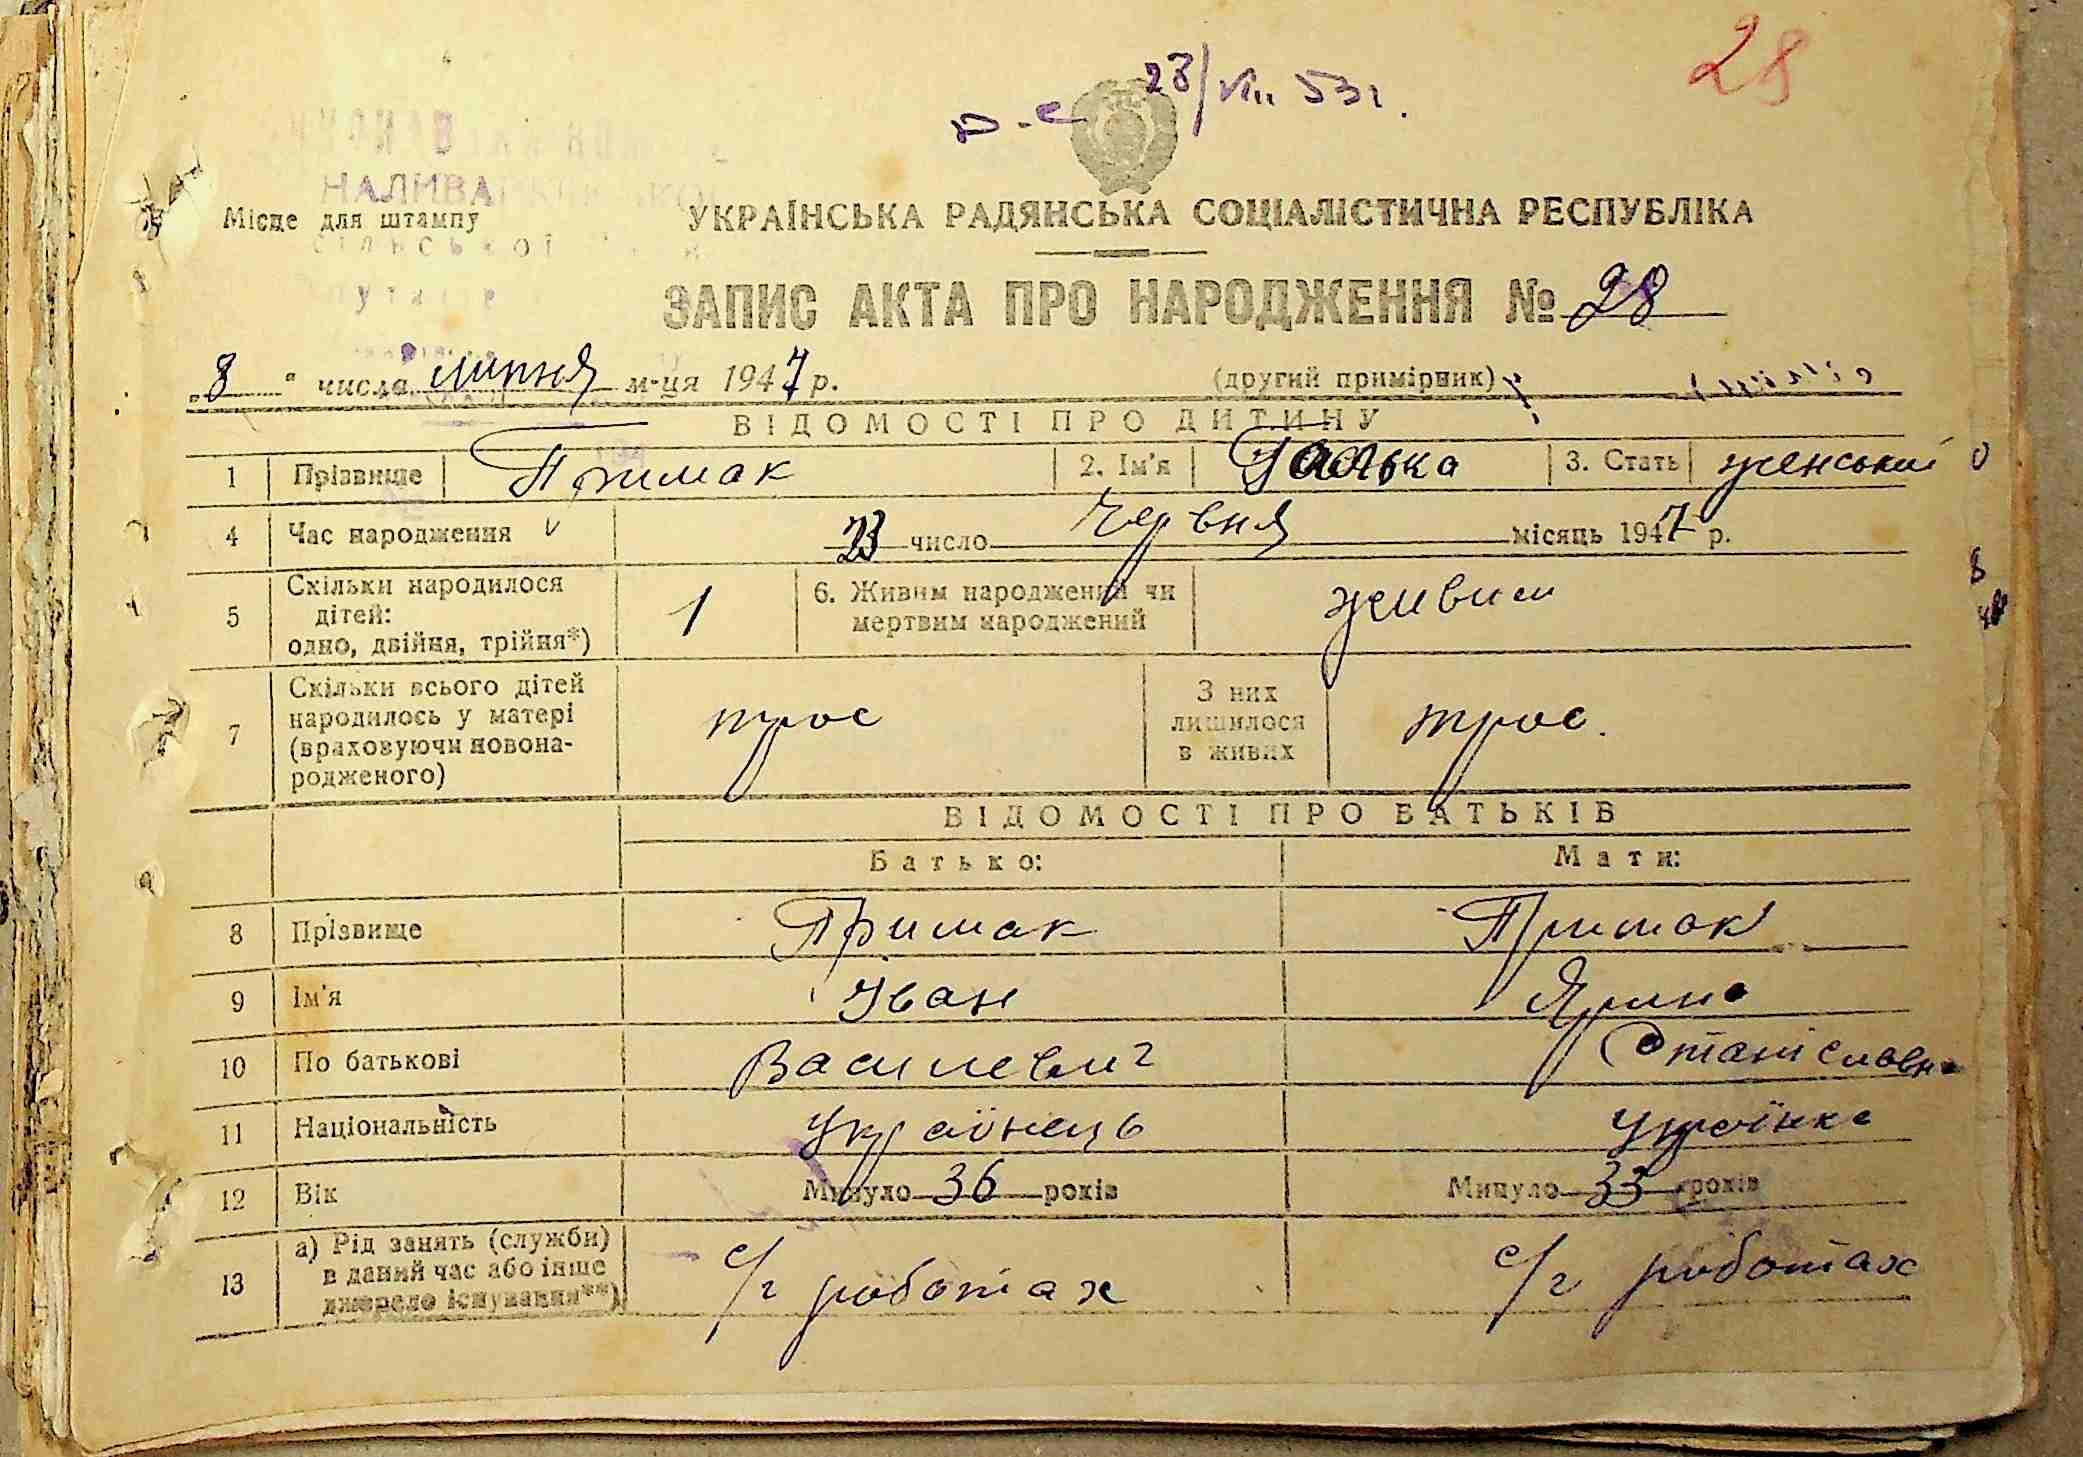 28
23/VII 53 г.
НАЛИВАЙКІВСЬКОЇ
Місце для штампу
сільської
УКРАЇНСЬКА РАДЯНСЬКА СОЦІАЛІСТИЧНА РЕСПУБЛІКА
ЗАПИС АКТА ПРО НАРОДЖЕННЯ № 28
„8" числа липня м-ця 1947 р. (другий примірник)
ВІДОМОСТІ ПРО ДИТИНУ
1 Прізвище Примак 2. Ім'я Галька 3. Стать женський
4 Час народження 23 число Червня місяць 1947 р.
5 Скільки народилося дітей: одно, двійня, трійня*) 1 6. Живим народжений чи мертвим народжений живим
7 Скільки всього дітей народилось у матері (враховуючи новонародженого) троє З них лишилося в живих троє.
ВІДОМОСТІ ПРО БАТЬКІВ
Батько: Мати:
8 Прізвище Примак Примак
9 Ім'я Іван Ярина
10 По батькові Василевич Станіславна
11 Національність українець українка
12 Вік Минуло 36 років Минуло 33 років
13 а) Рід занять (служби) в даний час або інше джерело існування**) с/г роботах с/г роботах